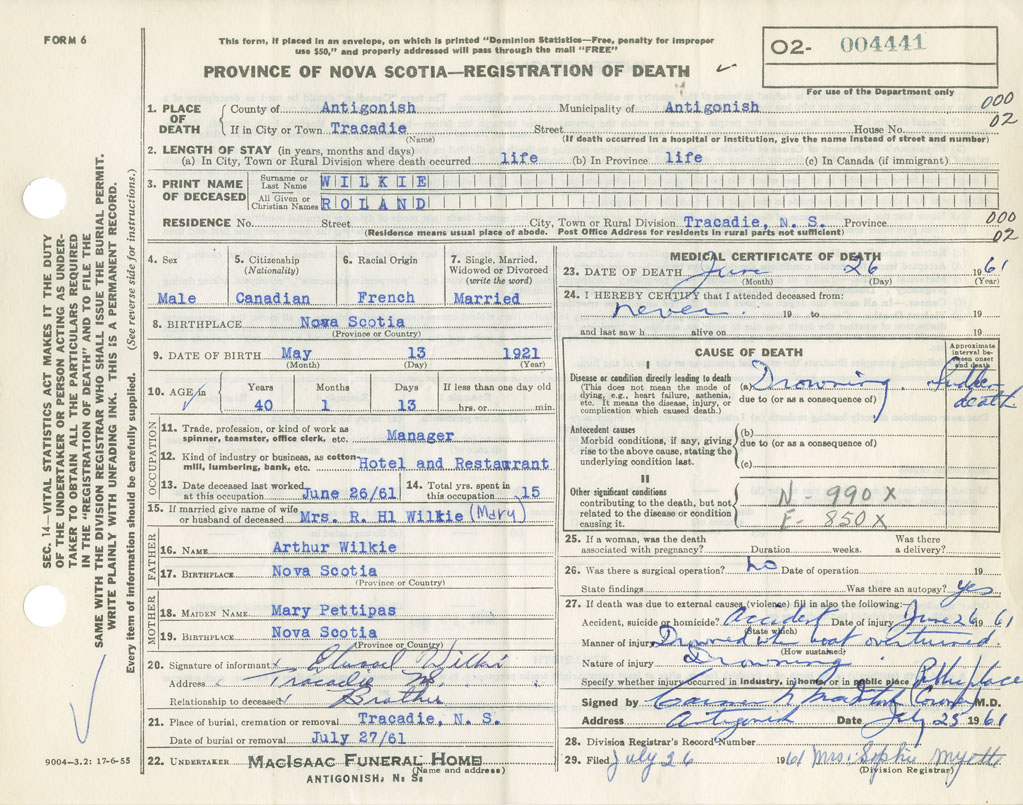 FORM 6
This form, if placed in an envelope, on which is printed "Dominion Statistics—Free, penalty for improper
use $50," and properly addressed will pass through the mail "FREE"
PROVINCE OF NOVA SCOTIA—REGISTRATION OF DEATH
O2- 004441
For use of the Department only
SEC. 14—VITAL STATISTICS ACT MAKES IT THE DUTY
OF THE UNDERTAKER OR PERSON ACTING AS UNDER-
TAKER TO OBTAIN ALL THE PARTICULARS REQUIRED
IN THE "REGISTRATION OF DEATH" AND TO FILE THE
SAME WITH THE DIVISION REGISTRAR WHO SHALL ISSUE THE BURIAL PERMIT.
WRITE PLAINLY WITH UNFADING INK. THIS IS A PERMANENT RECORD.
Every item of information should be carefully supplied. (See reverse side for instructions.)
1. PLACE OF DEATH County of Antigonish Municipality of Antigonish 000
If in City or Town Tracadie Street House No. 02
(Name) (If death occurred in a hospital or institution, give the name instead of street and number)
2. LENGTH OF STAY (in years, months and days)
(a) In City, Town or Rural Division where death occurred life (b) In Province life (c) In Canada (if immigrant)
3. PRINT NAME OF DECEASED Surname or Last Name WILKIE
All Given or Christian Names ROLAND
RESIDENCE No. Street City, Town or Rural Division Tracadie, N. S. Province 000
(Residence means usual place of abode. Post Office Address for residents in rural parts not sufficient) 02
4. Sex 5. Citizenship (Nationality) 6. Racial Origin 7. Single, Married, Widowed or Divorced (write the word)
Male Canadian French Married
8. BIRTHPLACE Nova Scotia
(Province or Country)
9. DATE OF BIRTH May 13 1921
(Month) (Day) (Year)
10. AGE in Years Months Days If less than one day old
40 1 13 hrs. or min.
OCCUPATION
11. Trade, profession, or kind of work as
spinner, teamster, office clerk, etc. Manager
12. Kind of industry or business, as cotton-
mill, lumbering, bank, etc. Hotel and Restaurant
13. Date deceased last worked at this occupation June 26/61 14. Total yrs. spent in this occupation 15
15. If married give name of wife
or husband of deceased Mrs. R. Hl Wilkie (Mary)
FATHER
16. NAME Arthur Wilkie
17. BIRTHPLACE Nova Scotia
(Province or Country)
MOTHER
18. MAIDEN NAME Mary Pettipas
19. BIRTHPLACE Nova Scotia
(Province or Country)
20. Signature of informant x Wilkie
Address Tracadie
Relationship to deceased x Brother
21. Place of burial, cremation or removal Tracadie, N. S.
Date of burial or removal July 27/61
22. UNDERTAKER MACISAAC FUNERAL HOME
(Name and address)
ANTIGONISH, N. S.
9004—3.2: 17-6-55
MEDICAL CERTIFICATE OF DEATH
23. DATE OF DEATH June 26 1961
(Month) (Day) (Year)
24. I HEREBY CERTIFY that I attended deceased from:
never 19 to 19
and last saw h alive on 19
CAUSE OF DEATH
Approximate interval be-
tween onset and death
I
Disease or condition directly leading to death
(This does not mean the mode of
dying, e.g., heart failure, asthenia,
etc. It means the disease, injury, or
complication which caused death.)
(a) Drowning. Sudden death
due to (or as a consequence of)
Antecedent causes
Morbid conditions, if any, giving
rise to the above cause, stating the
underlying condition last.
(b)
due to (or as a consequence of)
(c)
II
Other significant conditions
contributing to the death, but not
related to the disease or condition
causing it.
N - 990 X
E - 850 X
25. If a woman, was the death Was there
associated with pregnancy? Duration weeks. a delivery?
26. Was there a surgical operation? no Date of operation 19
State findings Was there an autopsy? yes
27. If death was due to external causes (violence) fill in also the following:
Accident, suicide or homicide? Accident Date of injury June 26 1961
(State which)
Manner of injury Drowned when boat overturned
(How sustained)
Nature of injury Drowning
Specify whether injury occurred in industry, in home, or in public place Public place
Signed by (Coroner) M.D.
Address Antigonish Date July 25 1961
28. Division Registrar's Record Number
29. Filed July 26 1961 Mrs. Sophie Myette
(Division Registrar)